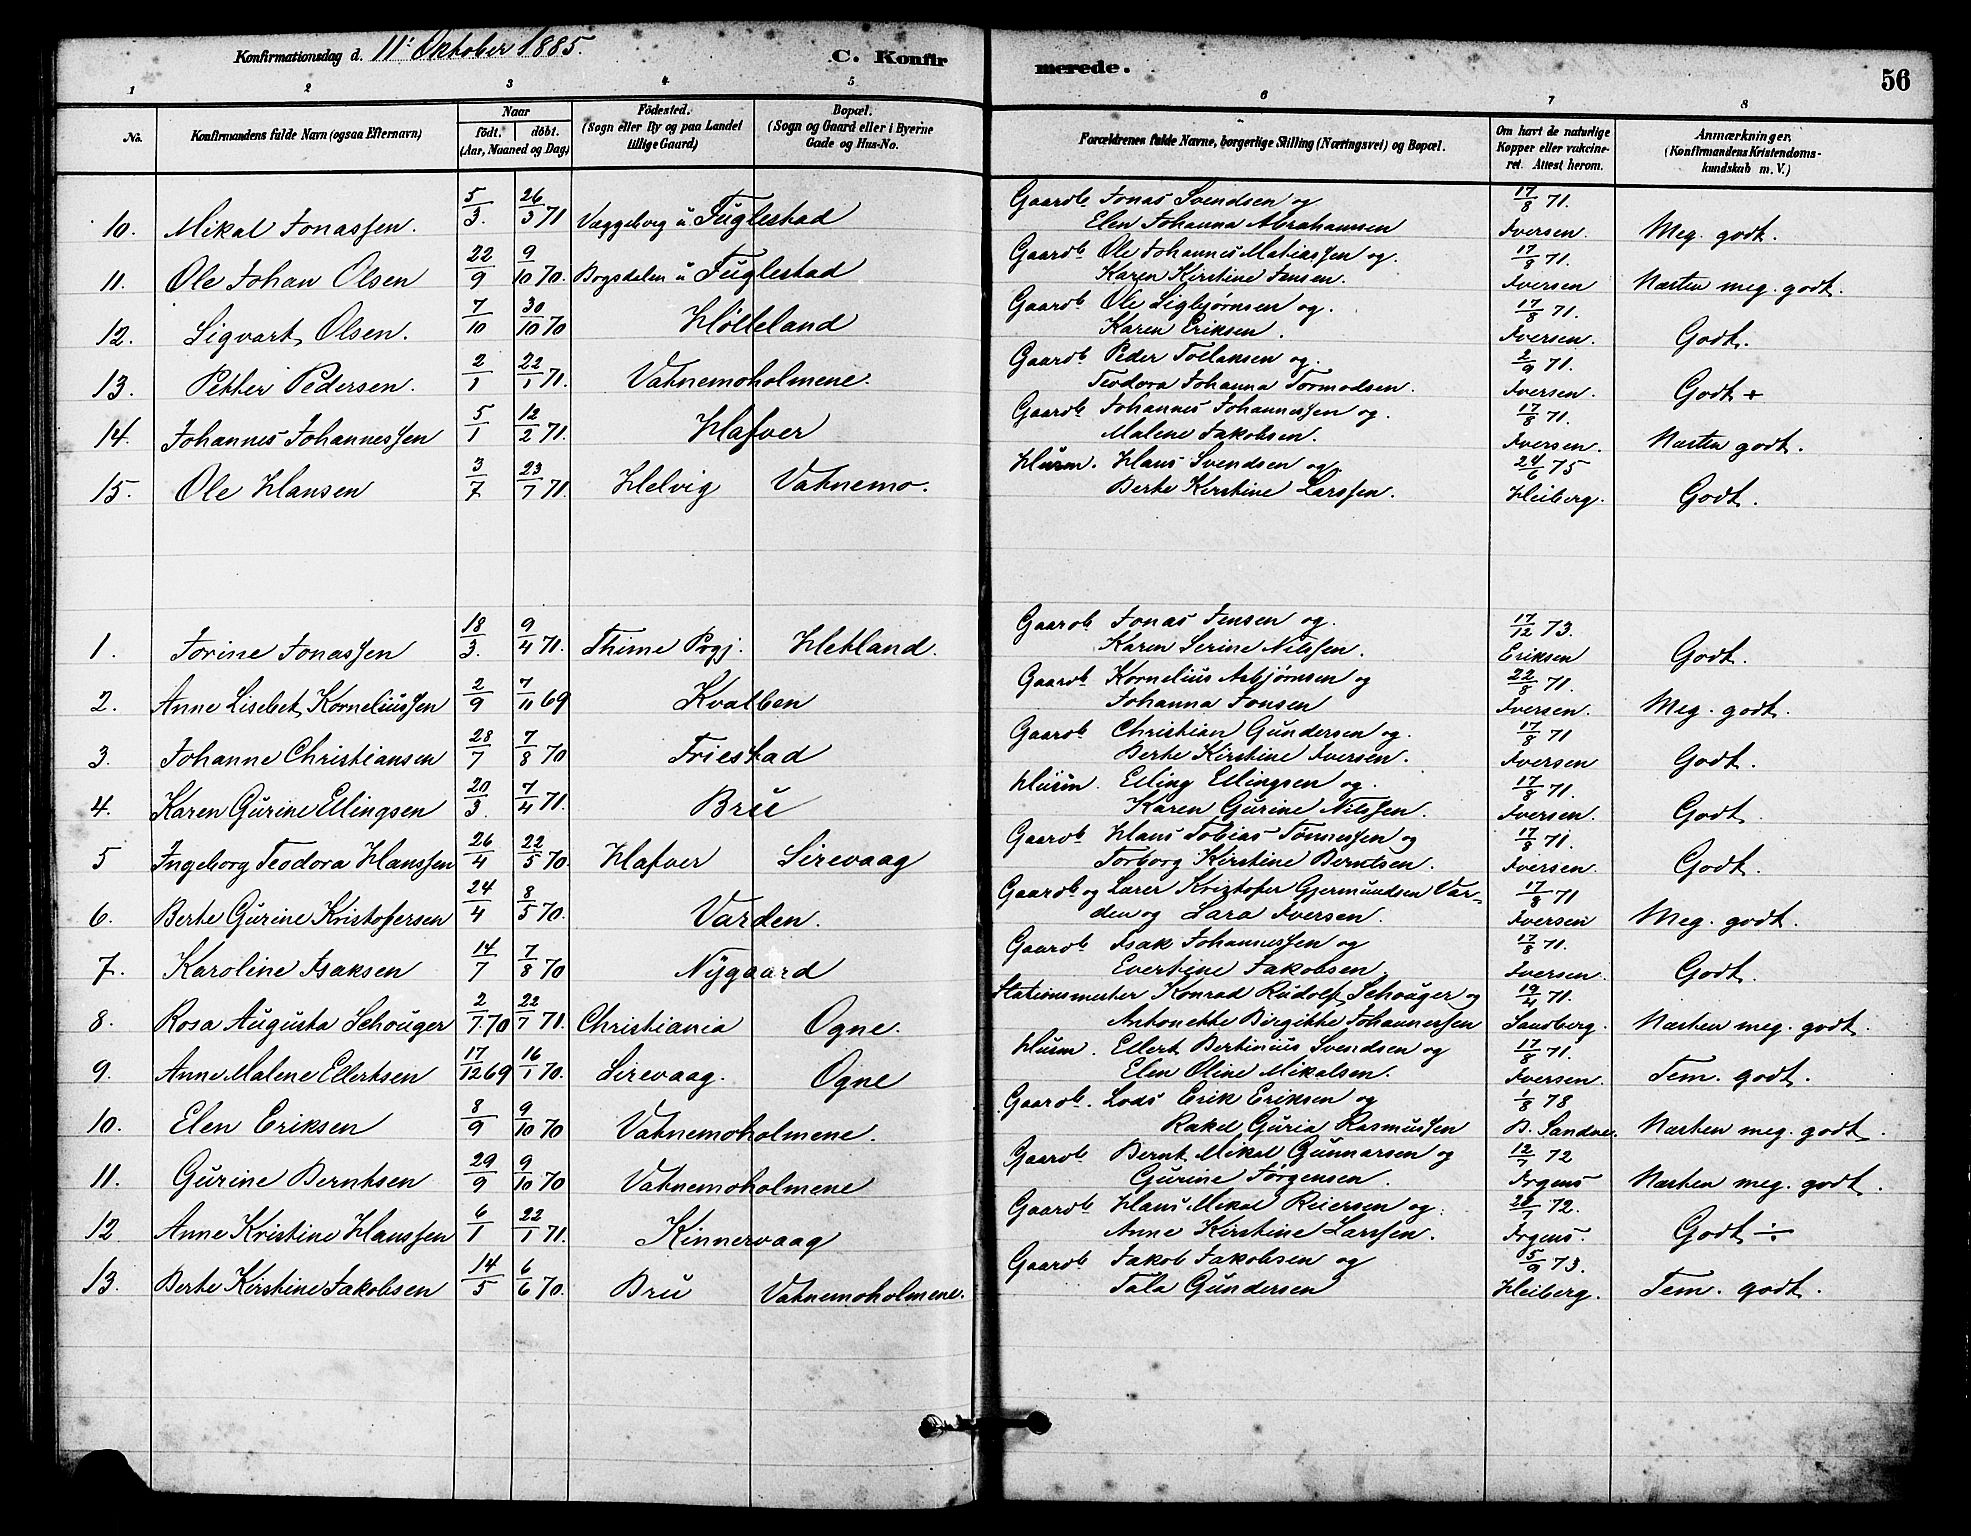 Konfirmationsdag d. 11' Oktober 1885. C. Konfirmerede. 56
1 2 3 4 5 6 7 8
No. Konfirmandens fulde Navn (ogsaa Efternavn) Naar født. døbt. (Aar, Maaned og Dag) Födested. (Sogn eller By og paa Landet tillige Gaard) Bopæl. (Sogn og Gaard eller i Byerne Gade og Hus-No. Forældrenes fulde Navne, borgerlige Stilling (Næringsvei) og Bopæl. Om havt de naturlige Kopper eller vakcineret. Attest herom. Anmærkninger. (Konfirmandens Kristendomskundskab m. V.)
10. Mikal Jonassen. 5/3. 26/3 71 Væggeberg u Fuglestad Gaardb Jonas Svendsen og Elen Johanna Abrahamsen 17/8 71. Iversen. Meg. godt.
11. Ole Johan Olsen 22/9 9/10 70. Bogsdalen u Fuglestad Gaardb Ole Johannes Matiassen og Karen Kirstine Jensen. 17/8 71. Iversen Næsten meg. godt.
12. Sigvart Olsen. 7/10 30/10 70 Hølleland Gaardb Ole Sigbjørnsen og Karen Eriksen. 17/8 71. Iversen. Godt.
13. Petter Pedersen. 2/1 22/1 71. Vatnemoholmene. Gaardb Peder Tollansen og Teodora Johanna Tormodsen. 2/9 71. Iversen. Godt +
14. Johannes Johannessen 5/1 12/2 71. Hafver Gaardb Johannes Johannessen og Malene Jakobsen. 17/8 71. Iversen. Næsten godt.
15. Ole Hansen 3/7 23/7 71. Helvig Vatnemo. Husm. Hans Svendsen og Berte Kirstine Larssen. 24/6 75 Heiberg. Godt.
1. Jorine Jonassen 18/3. 9/4 71. Thime Prgj. Hetland. Gaardb Jonas Jensen og Karen Serine Nilssen. 17/12 73. Eriksen Godt.
2. Anne Lisebet Korneliussen 2/9 7/11 69 Kvalben Gaardb Kornelius Asbjørnsen og Johanna Jonsen 22/8 71. Iversen. Meg. godt.
3. Johanne Christiansen 28/7 7/8 70 Friestad Gaardb Christian Gundersen og Berte Kirstine Iversen. 17/8 71 Iversen Godt.
4. Karen Gurine Ellingsen 20/3. 7/4 71. Bru Husm. Elling Ellingsen og Karen Gurine Nilssen. 17/8 71. Iversen. Godt.
5 Ingeborg Teodora Hanssen 26/4 22/5 70. Hafver Sirevaag Gaardb Hans Tobias Tønnessen og Torborg Kirstine Berntsen. 17/8 71. Iversen. Godt.
6. Berte Gurine Kristofersen 24/4 8/5 70. Varden. Gaardb og Lærer Kristofer Gjermundsen Varden og Lara Iversen. 17/8 71 Iversen Meg. godt.
7. Karoline Isaksen 14/7 7/8 70 Nygaard Gaardb Isak Johannessen og Evertine Jakobsen. 17/8 71. Iversen. Godt.
8. Rosa Augusta Schouger 2/7. 70 22/7 71. Christiania Ogne. Stationsmester Konrad Rudolf Schouger og Antonette Birgitte Johannessen 19/4 71. Sandberg. Næsten meg. godt.
9. Anne Malene Ellertsen 17/12 69 16/1 70. Sirevaag. Ogne Husm. Ellert Bertinius Svendsen og Elen Oline Mikalsen. 17/8 71. Iversen. Tem. godt.
10. Elen Eriksen 8/9 9/10 70 Vatnemoholmene. Gaardb. Lods Erik Eriksen og Rakel Guria Rasmussen 1/8 78 B. Sandve. Næsten meg. godt.
11. Gurine Berntsen 29/9 9/10 70 Vatnemoholmene Gaardb Bernt Mikal Gunnarsen og Gurine Jørgensen. 12/7 72 Irgens Næsten meg. godt.
12 Anne Kristine Hanssen 6/1 22/1 71. Kinnervaag Gaardb Hans Mikal Reiersen og Anne Kirstine Larssen. 26/7 72. Irgens. Godt ÷
13. Berte Kirstine Jakobsen 14/5 6/6 70. Bru Vatnemoholmene. Gaardb Jakob Jakobsen og Tala Gundersen 5/9 73. Heiberg. Tem. godt.